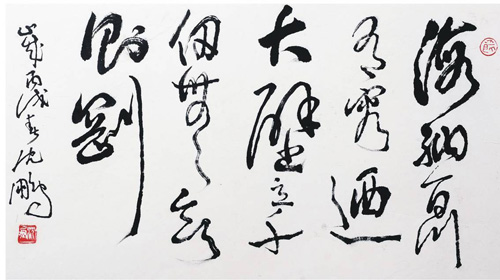 海納百川
有容迺
大壁立千
仞無欲
則剛
歲丙戌春沈鵬